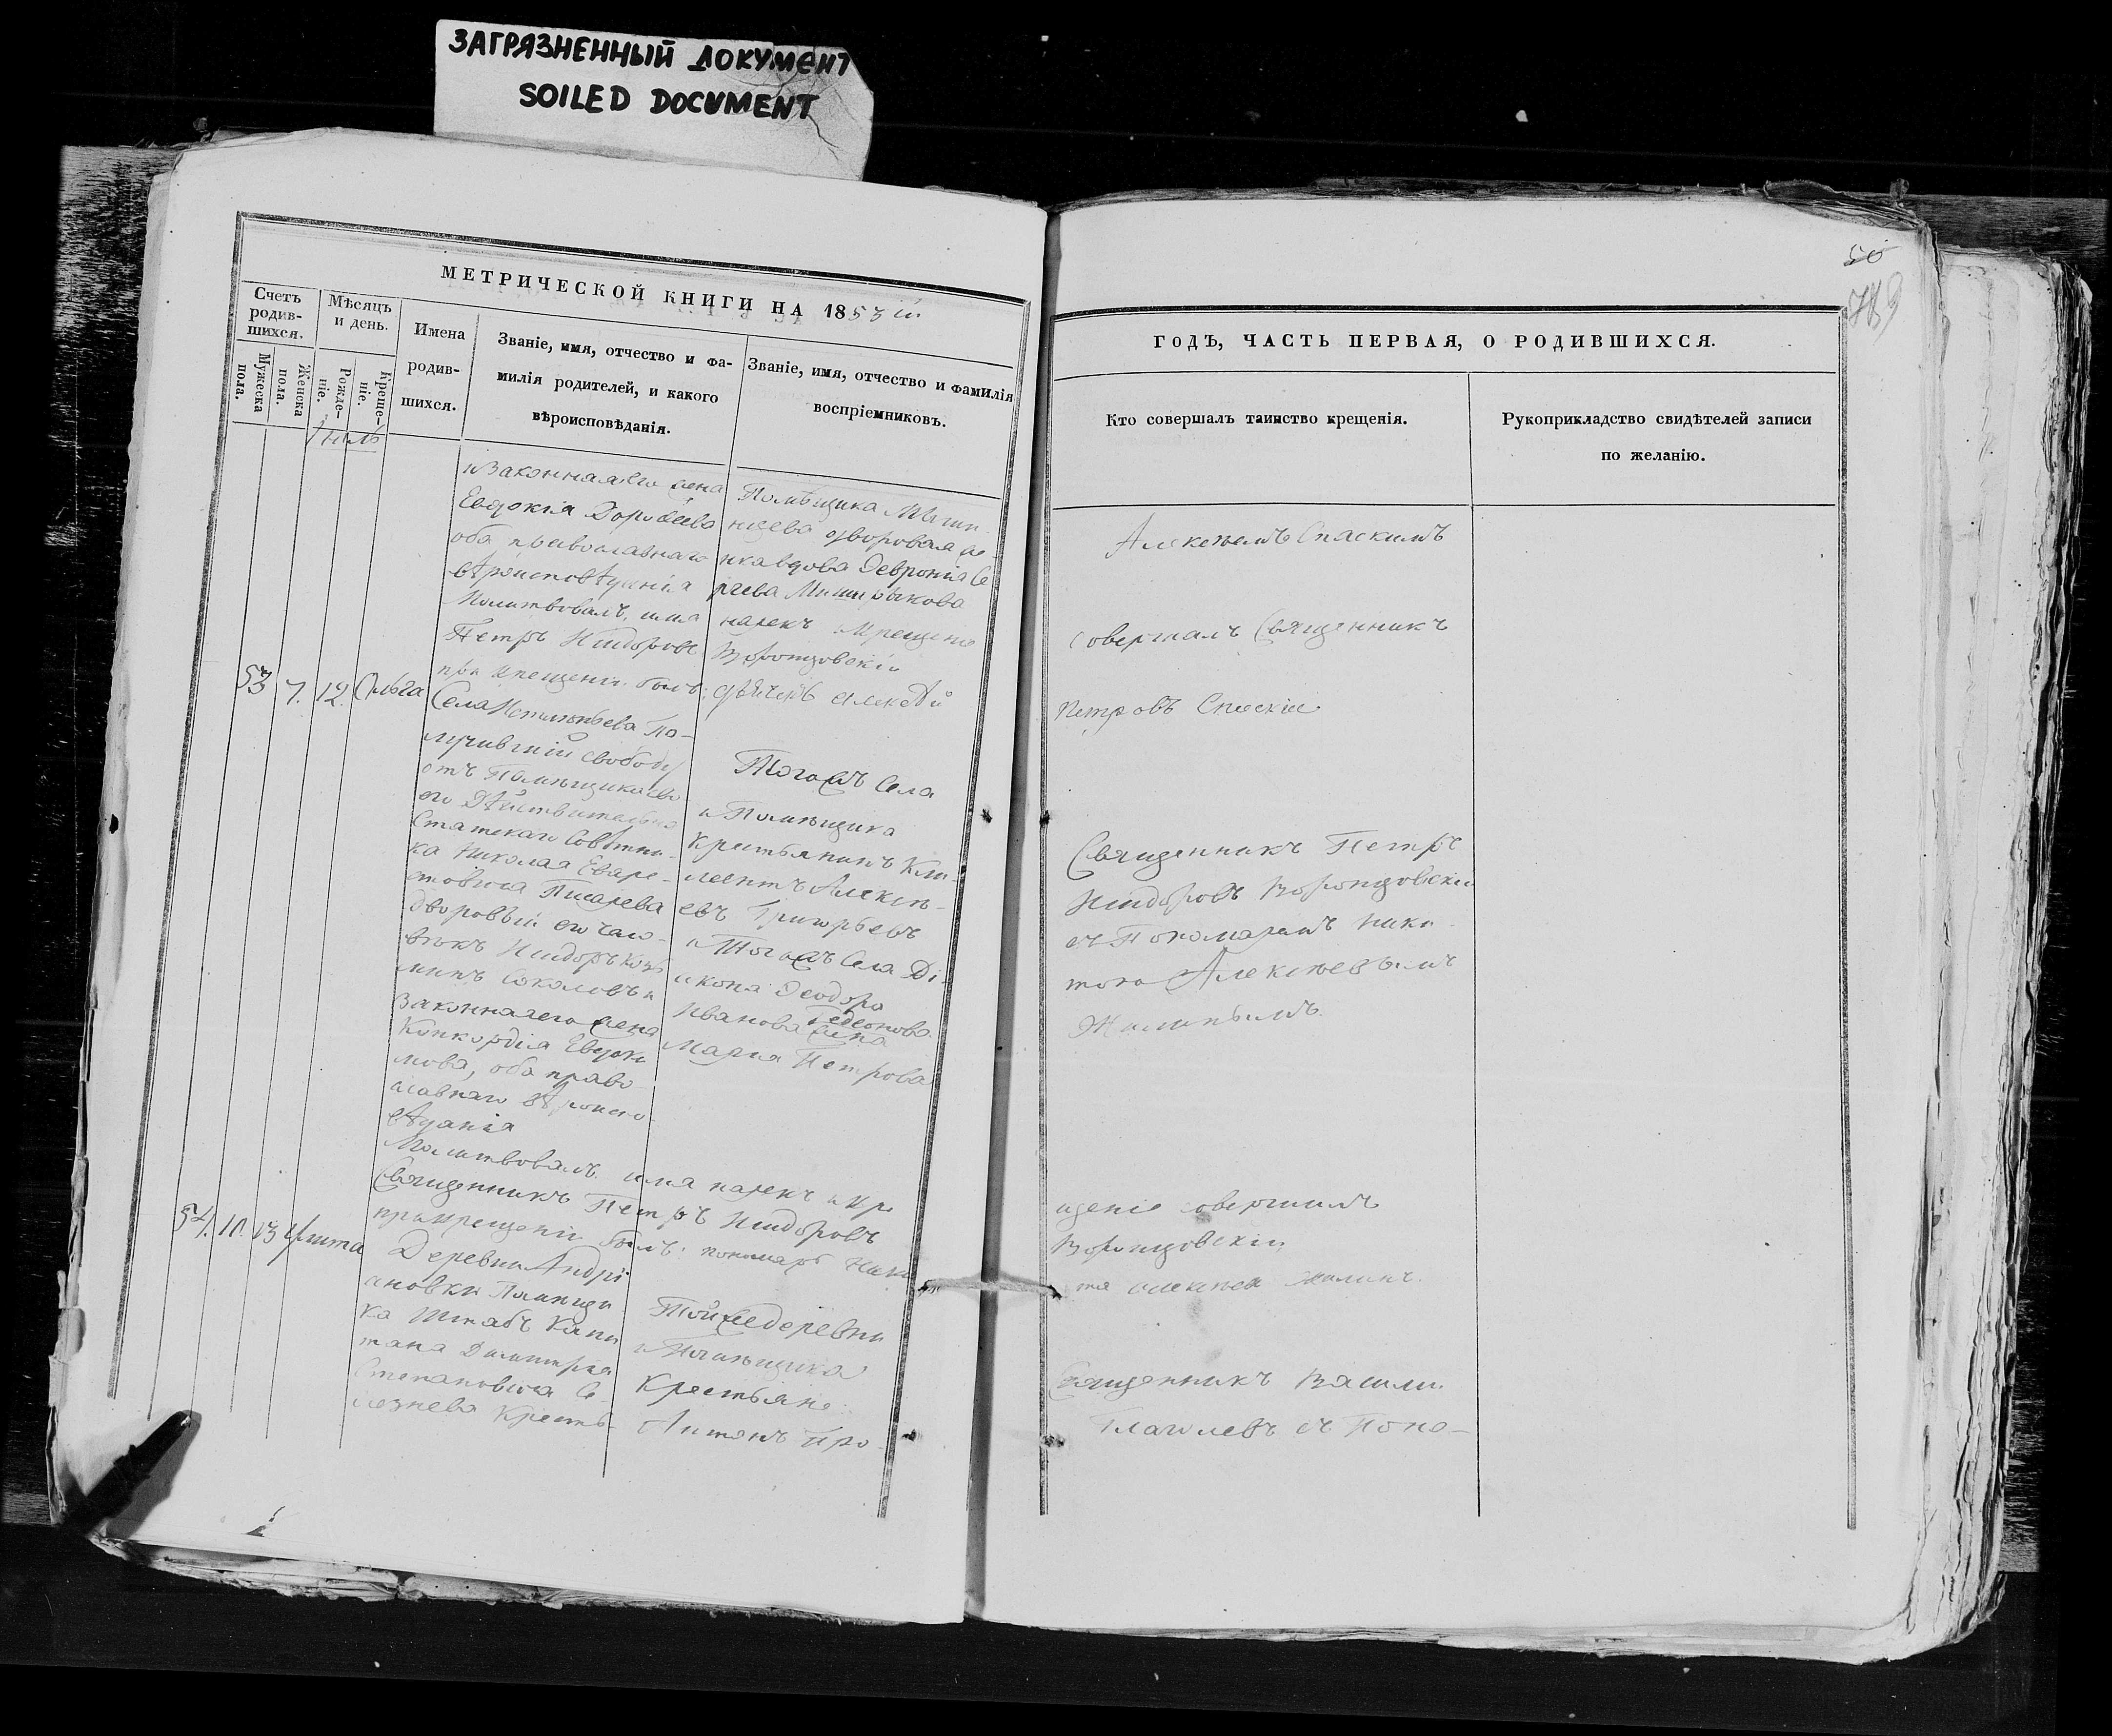 ЗАГРЯЗНЕННЫЙ ДОКУМЕНТ
SOILED DOCUMENT
МЕТРИЧЕСКОЙ КНИГИ НА 1853 й
Счетъ родившихся.
Мужеска пола.
Женска пола.
Мѣсяцъ и день.
Рожденіе.
Крещеніе.
Имена
родив-
шихся.
Званіе, имя, отчество и фа-
милія родителей, и какого
вѣроисповѣданія.
Званіе, имя, отчество и фамилія
воспріемниковъ.
и Законная его жена
Евдокія Дорофеева
оба православнаго
вѣроисповѣданія
Молитвовалъ, имя
Петръ Исидоровъ
при крещеніи былъ:
Помѣщика
дворовая
вдова Февронія Се
ргева
нарек крещеніе
Воронцовскій
дьячекъ Алексѣй
53
7.
12.
Ольга
Села По-
лучившій свободу
отъ Помѣщика сво
его Дѣйствительно
Статскаго Совѣтни-
ка Николая Евре-
Писарева
дворовый его чело-
вѣкъ Исидоръ Козь
минъ Соколовъ и
Законная его жена
Конкордія Евдоки
мова, оба право-
славнаго вѣроиспо
вѣданія
Тогожъ Села
и Помѣщика
Крестьянинъ Кли-
ментъ Алексѣ-
евъ Григорьевъ
и Тогожъ Села Ді-
акона Феодора
Иванова Гедеонова
жена
Марія Петрова
Молитвовалъ имя нарек и кре
Священникъ Петръ Исидоровъ
при крещеніи былъ: пономарь Ники
54.
10.
13
Деревни Андрі
ановки Помѣщи
ка Штабъ Капи
тана Димитрія
Степановича Се-
лезнева Кресть-
Той же деревни
и Помѣщика
Крестьяне:
Антонъ Про-
50
789
ГОДЪ, ЧАСТЬ ПЕРВАЯ, О РОДИВШИХСЯ.
Кто совершалъ таинство крещенія.
Рукоприкладство свидѣтелей записи
по желанію.
Алексѣемъ Спаскимъ
совершалъ Священникъ
Петровъ Спаскій
Священникъ Петръ
Исидоровъ Воронцовскій
съ Пономаремъ Ники
тою Алексѣевымъ
Жилинымъ.
щеніе совершилъ
Воронцовскій,
та Алексѣев Жилинъ.
Священникъ Василій
Глаголевъ съ Поно-